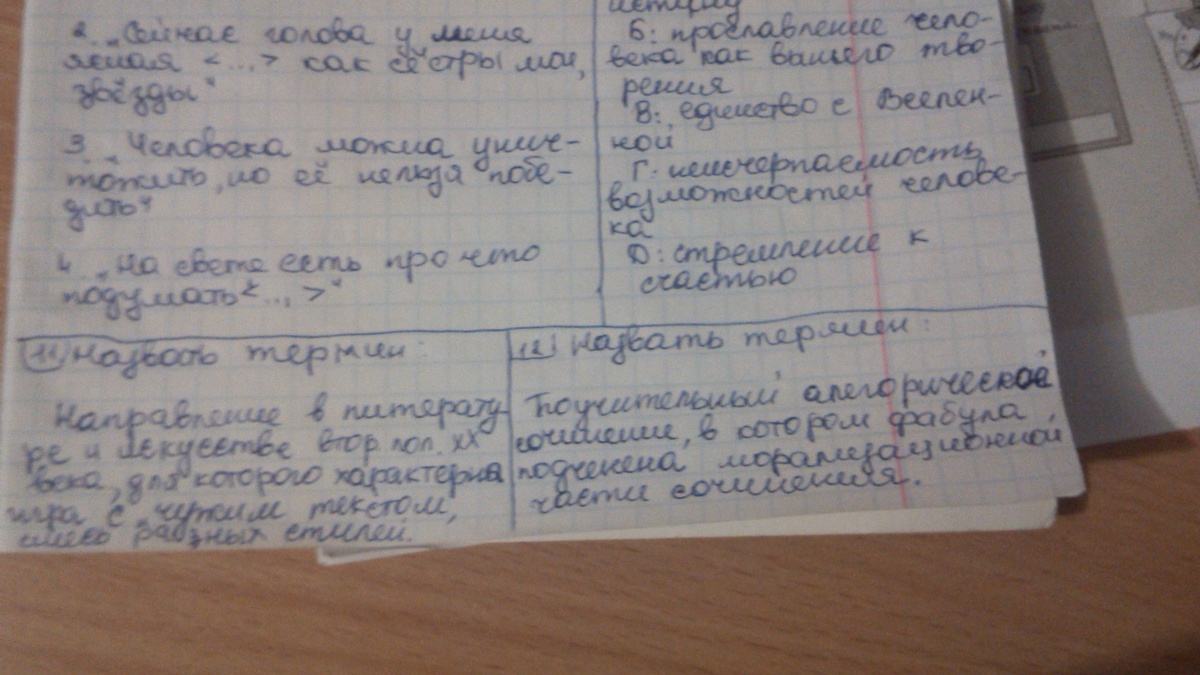 2. „Сейчас голова у меня
ясная <...> как сёстры мои,
звёзды"
3. „Человека можна унич-
тожить, но её нельзя побе-
дить"
4. „На свете есть про что
подумать <...>"
истину
Б: прославление чело-
века как вашего тво-
рения
В: единство с Вселен-
ной
Г: неисчерпаемость
возможностей челове-
ка
Д: стремление к
счастью
11) Назвать термин:
Направление в литерату
ре и искусстве втор. пол. XX
века, для которого характерна
игра с чужим текстом,
смесь разных стилей.
12) Назвать термин:
Поучительный алегорическое
сочинение, в котором фабула
подченена морализационной
части сочинения.